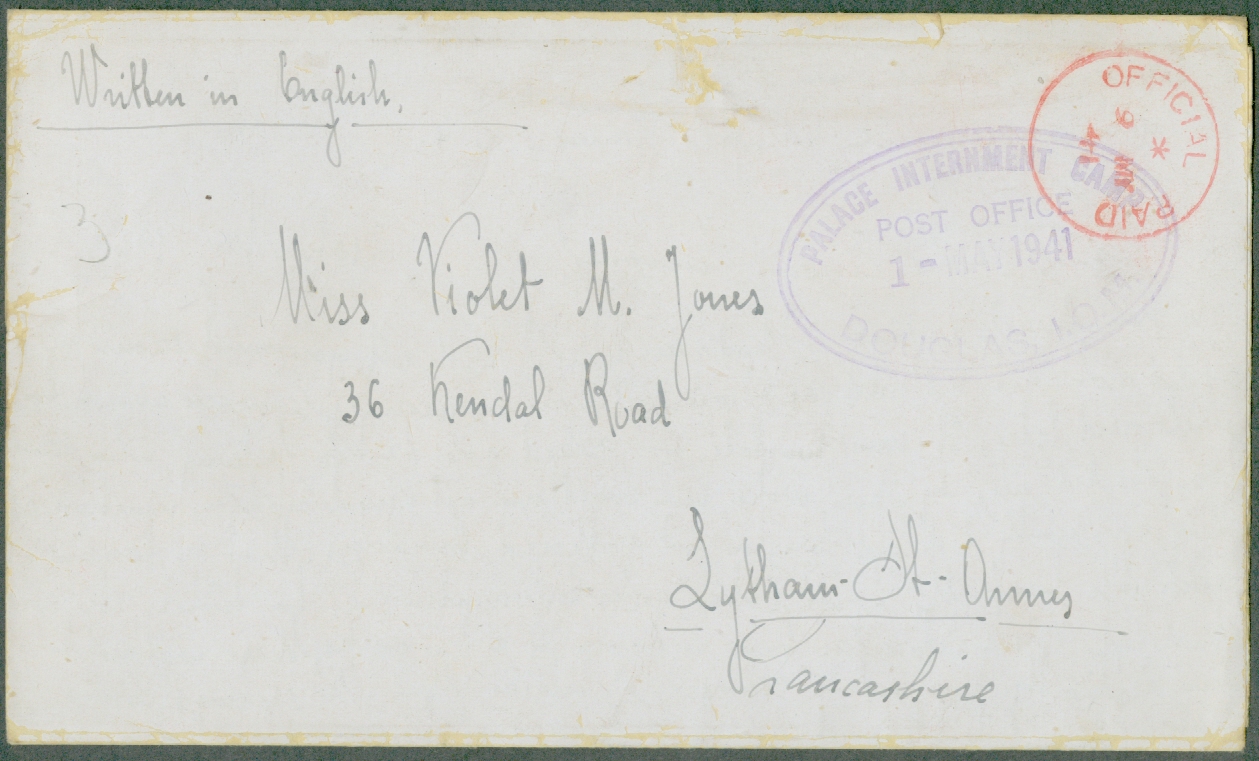 Written in English.
3
PALACE INTERNMENT CAMP
POST OFFICE
1-MAY1941
DOUGLAS, I.O.M.
OFFICIAL
PAID
Miss Violet M. Jones
36 Kendal Road
Lytham-St-Annes
Lancashire